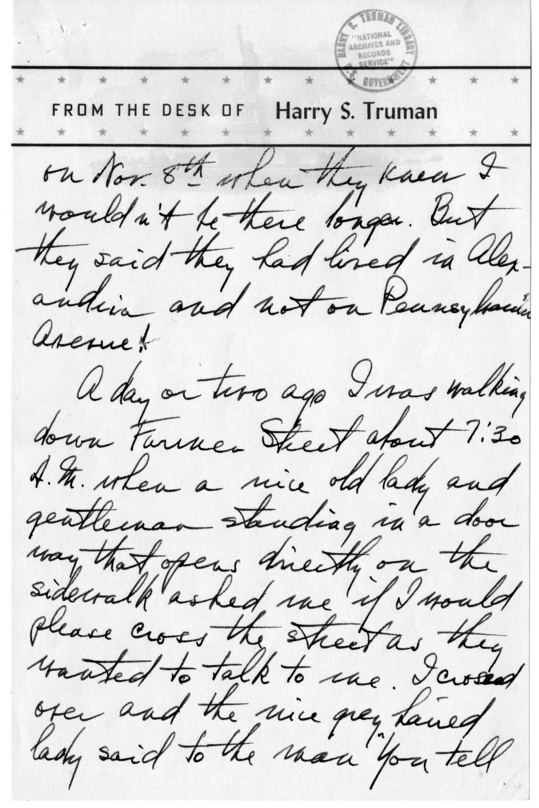 HARRY S. TRUMAN LIBRARY
"NATIONAL
ARCHIVES AND
RECORDS
SERVICE"
U.S. GOVERNMENT
FROM THE DESK OF Harry S. Truman
on Nov. 8th when they knew I
wouldn't be there longer. But
they said they had lived in Alex-
andria and not on Pennsylvania
Avenue!
A day or two ago I was walking
down Farmer Street about 7:30
A.M. when a nice old lady and
gentleman standing in a door
way that opens directly on the
sidewalk asked me if I would
please cross the street as they
wanted to talk to me. I crossed
over and the nice grey haired
lady said to the man "You tell